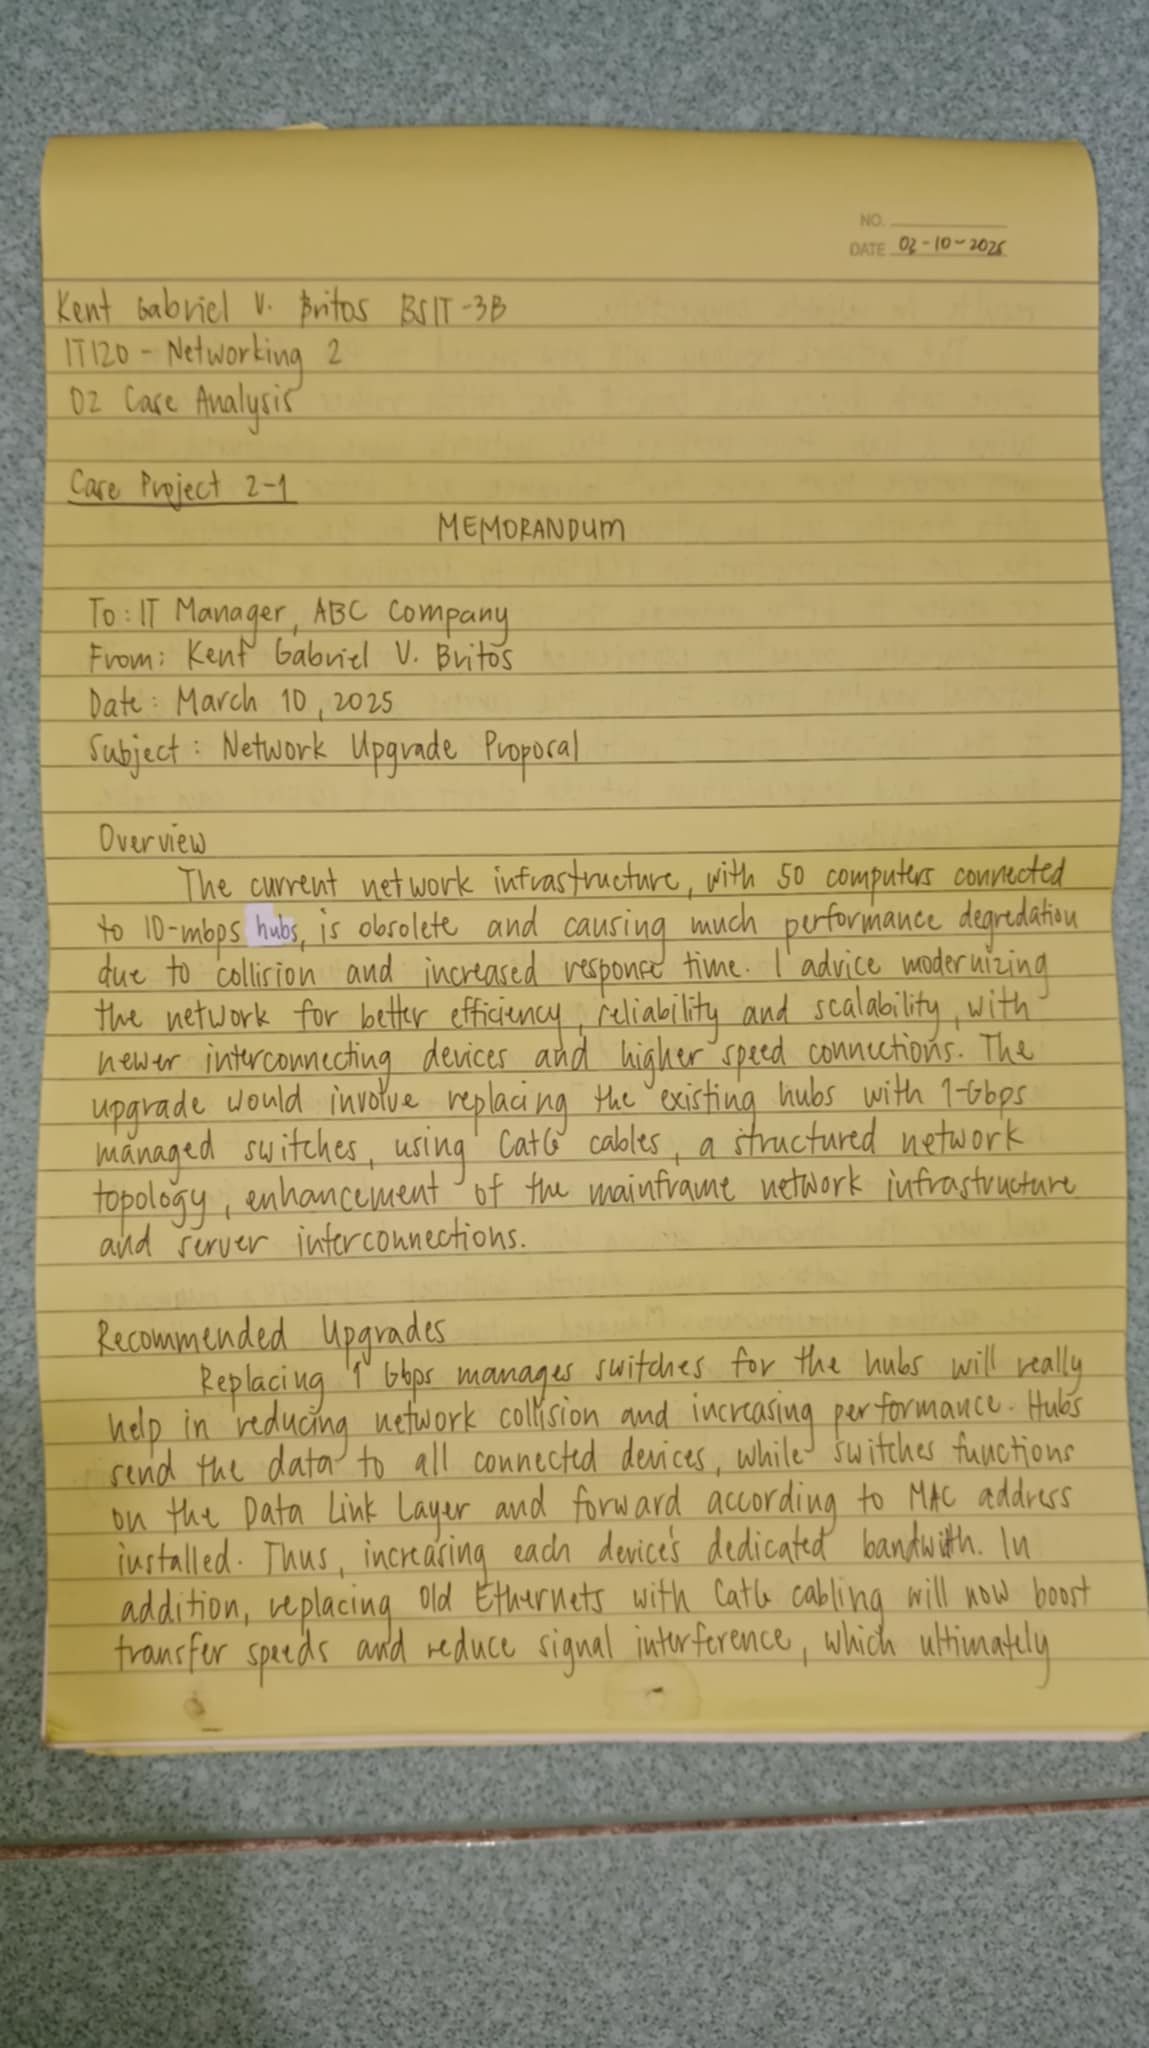 NO.
DATE 03-10-2025
Kent Gabriel V. Britos BSIT-3B
IT120 - Networking 2
02 Case Analysis
Case Project 2-1
MEMORANDUM
To: IT Manager, ABC Company
From: Kent Gabriel V. Britos
Date: March 10, 2025
Subject: Network Upgrade Proposal
Overview
The current network infrastructure, with 50 computers connected
to 10-mbps hubs, is obsolete and causing much performance degredation
due to collision and increased response time. I advice modernizing
the network for better efficiency, reliability and scalability, with
newer interconnecting devices and higher speed connections. The
upgrade would involve replacing the existing hubs with 1-Gbps
managed switches, using Cat6 cables, a structured network
topology, enhancement of the mainframe network infrastructure
and server interconnections.
Recommended Upgrades
Replacing 1 Gbps manages switches for the hubs will really
help in reducing network collision and increasing performance. Hubs
send the data to all connected devices, while switches functions
on the Data Link Layer and forward according to MAC address
installed. Thus, increasing each device's dedicated bandwith. In
addition, replacing old Ethernets with Cat6 cabling will now boost
transfer speeds and reduce signal interference, which ultimately